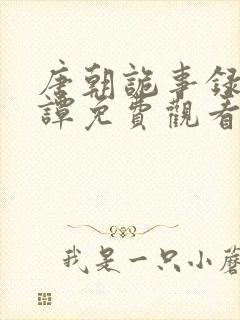 唐朝詭事錄
譚免費觀看
我是一只小蘑